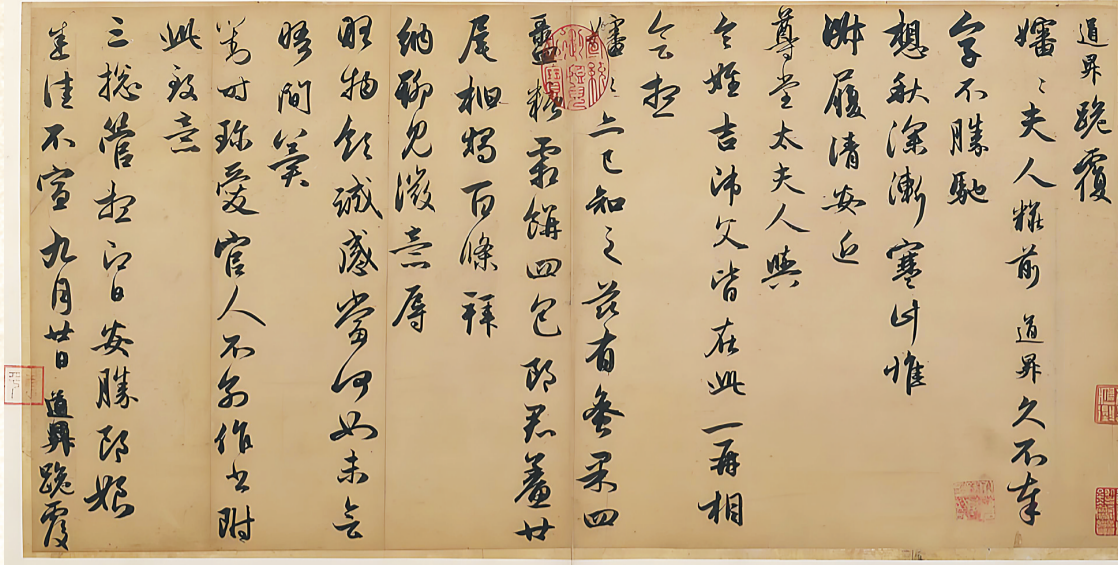 道昇跪覆
嬸〻夫人糚前道昇久不奉
字不勝馳
想秋深漸寒計惟
淑履清安近
尊堂太夫人與
令姪吉師父皆在此一再相
會想
嬸〻亦已知之茲有蜜果四
盝糖霜餅四包郎君鯗廿
尾柏燭百條拜
納聊見微意辱
物領誠感當何如未會
晤間冀
對時珍愛官人不別作書附
此致意
三總管想即日安勝郎娘
悉佳不宣九月廿日道昇跪覆